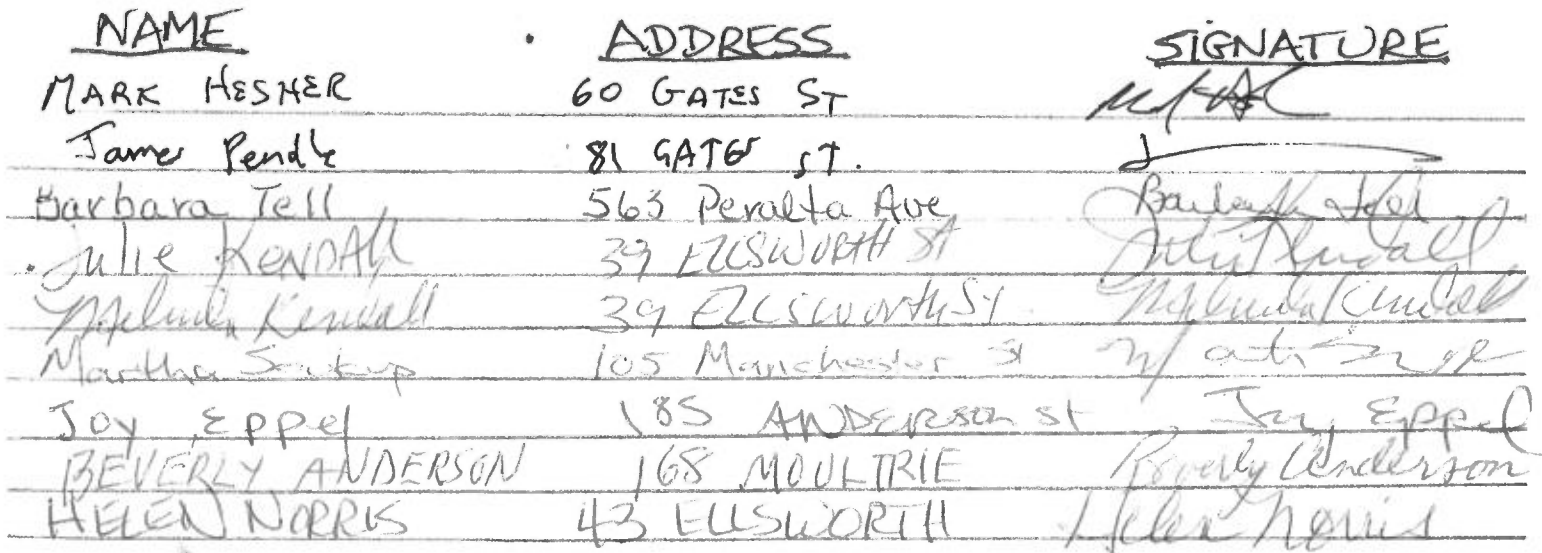 NAME ADDRESS SIGNATURE
MARK HESHER 60 GATES ST
James Pendle 81 GATES ST.
Barbara Tell 563 Peralta Ave
Julie KENDAll 39 ELLSWORTH ST Julie Kendall
Melinda Kendall 39 ELLSWORTH ST Melinda Kendall
Martha 105 Manchester St
Joy Eppel 185 ANDERSON st Joy Eppel
BEVERLY ANDERSON 168 MOULTRIE Beverly Anderson
HELEN NORRIS 43 ELLSWORTH Helen Norris